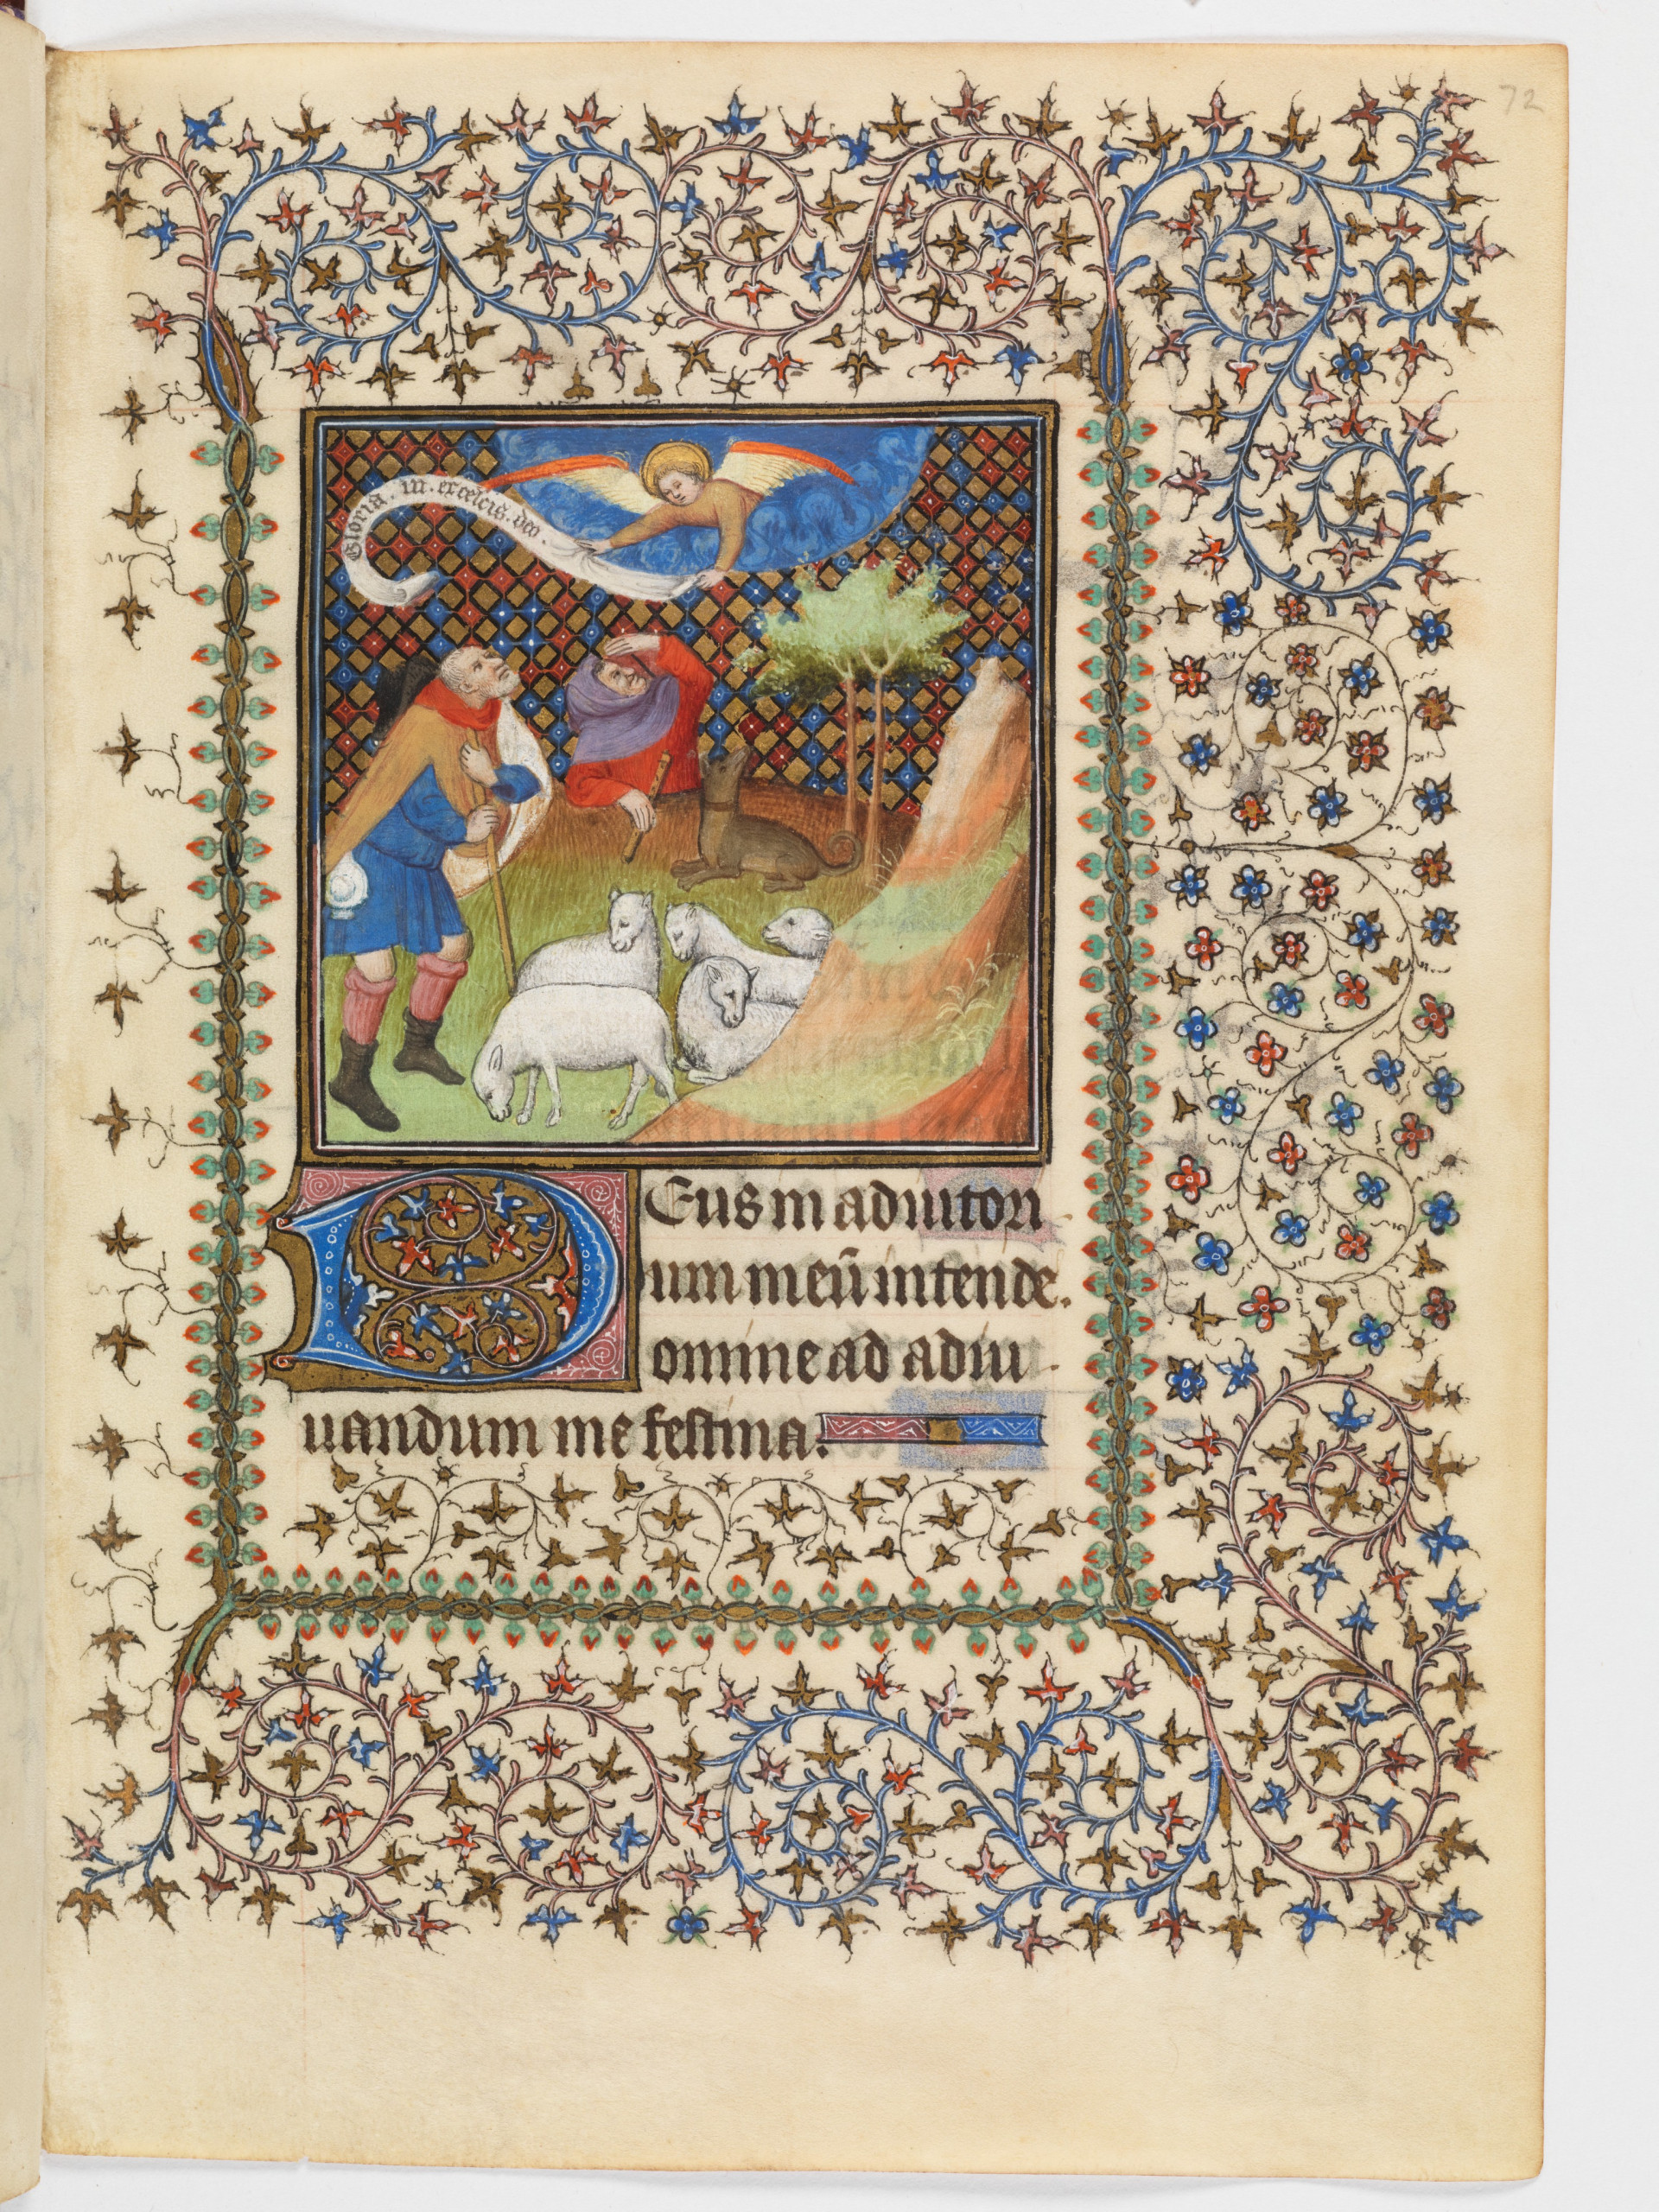 72
Gloria. in. excelcis. deo.
Deus in adiutori
um meū intende.
omine ad adiu
uandum me festina.